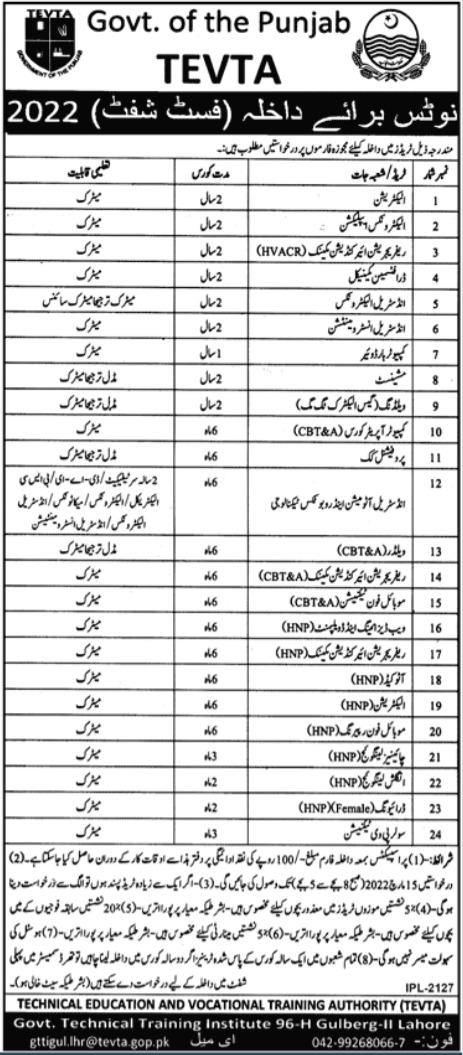 TEVTA
GOVERNMENT OF THE PUNJAB
Govt. of the Punjab
TEVTA
نوٹس برائے داخلہ (فسٹ شفٹ) 2022
مندرجہ ذیل ٹریڈز میں داخلہ کیلئے مجوزہ فارموں پر درخواستیں مطلوب ہیں:۔
نمبر شمار ٹریڈ/شعبہ جات مدت کورس تعلیمی قابلیت
1 الیکٹریشن 2سال میٹرک
2 الیکٹرونکس اپلیکیشن 2سال میٹرک
3 ریفریجریشن ائیر کنڈیشن مکینک (HVACR) 2سال میٹرک
4 ڈرافٹسمین مکینیکل 2سال میٹرک
5 انڈسٹریل الیکٹرونکس 2سال میٹرک ترجیحا میٹرک سائنس
6 انڈسٹریل انسٹرومینٹیشن 2سال میٹرک
7 کمپیوٹر ہارڈوئیر 1سال میٹرک
8 مشینسٹ 2سال مڈل ترجیحا میٹرک
9 ویلڈنگ (گیس الیکٹرک ٹگ مگ) 2سال مڈل ترجیحا میٹرک
10 کمپیوٹر آپریٹر کورس (CBT&A) 6ماہ میٹرک
11 پروفیشنل کک 6ماہ مڈل ترجیحا میٹرک
12 انڈسٹریل آٹومیشن اینڈ روبوٹکس ٹیکنالوجی 6ماہ 2سالہ سرٹیفکیٹ/ڈی-اے-ای/بی ایس سی
الیکٹریکل/الیکٹرونکس/میکاٹونکس/انڈسٹریل
الیکٹرونکس/انڈسٹریل انسٹرومینٹیشن
13 ویلڈر (CBT&A) 6ماہ مڈل ترجیحا میٹرک
14 ریفریجریشن ائیر کنڈیشن مکینک (CBT&A) 6ماہ میٹرک
15 موبائل فون ٹیکنیشن (CBT&A) 6ماہ میٹرک
16 ویب ڈیزائننگ اینڈ ڈویلپمنٹ (HNP) 6ماہ میٹرک
17 ریفریجریشن ائیر کنڈیشن مکینک (HNP) 6ماہ میٹرک
18 آٹوکیڈ (HNP) 6ماہ میٹرک
19 الیکٹریشن (HNP) 6ماہ میٹرک
20 موبائل فون رپیرنگ (HNP) 6ماہ میٹرک
21 چائینیز لینگوئج (HNP) 3ماہ میٹرک
22 انگلش لینگوئج (HNP) 2ماہ میٹرک
23 ڈرائیونگ (Female)(HNP) 2ماہ میٹرک
24 سولر پی وی ٹیکنیشن 3ماہ میٹرک
شرائط:- (1) پراسپیکٹس بمعہ داخلہ فارم مبلغ -/100 روپے کی نقد ادائیگی پر دفتر ہذا سے اوقات کار کے دوران حاصل کیا جاسکتا ہے۔ (2)
درخواستیں 15 مارچ 2022 (صبح 8 بجے سے 5 بجے) تک وصول کی جائیں گی۔ (3)- اگر ایک سے زیادہ ٹریڈ پسند ہوں تو الگ سے درخواست دینا
ہوگی-(4) 5% نشستیں موزوں ٹریڈز میں معذور بچوں کیلئے مخصوص ہیں- بشرطیکہ معیار پر پورا اتریں-(5) 20% نشستیں سابقہ فوجیوں کے میں
بچوں کیلئے مخصوص ہیں- بشرطیکہ معیار پر پورا اتریں-(6) 5% نشستیں مینارٹی کیلئے مخصوص ہیں- بشرطیکہ معیار پر پورا اتریں-(7) ہوسٹل کی
سہولت میسر نہیں ہوگی-(8) تمام شعبوں میں ایک سالہ کورس کے پاس شدہ ٹرینیز اگر دو سالہ کورس میں داخلہ لینا چاہیں تو تھرڈ سمیسٹر میں پہلی
شفٹ میں داخلہ کے لیے درخواست دے سکتے ہیں (بشرطیکہ سیٹ خالی ہو)- IPL-2127
TECHNICAL EDUCATION AND VOCATIONAL TRAINING AUTHORITY (TEVTA)
Govt. Technical Training Institute 96-H Gulberg-II Lahore
فون:- 042-99268066-7 ای میل gttigul.lhr@tevta.gop.pk